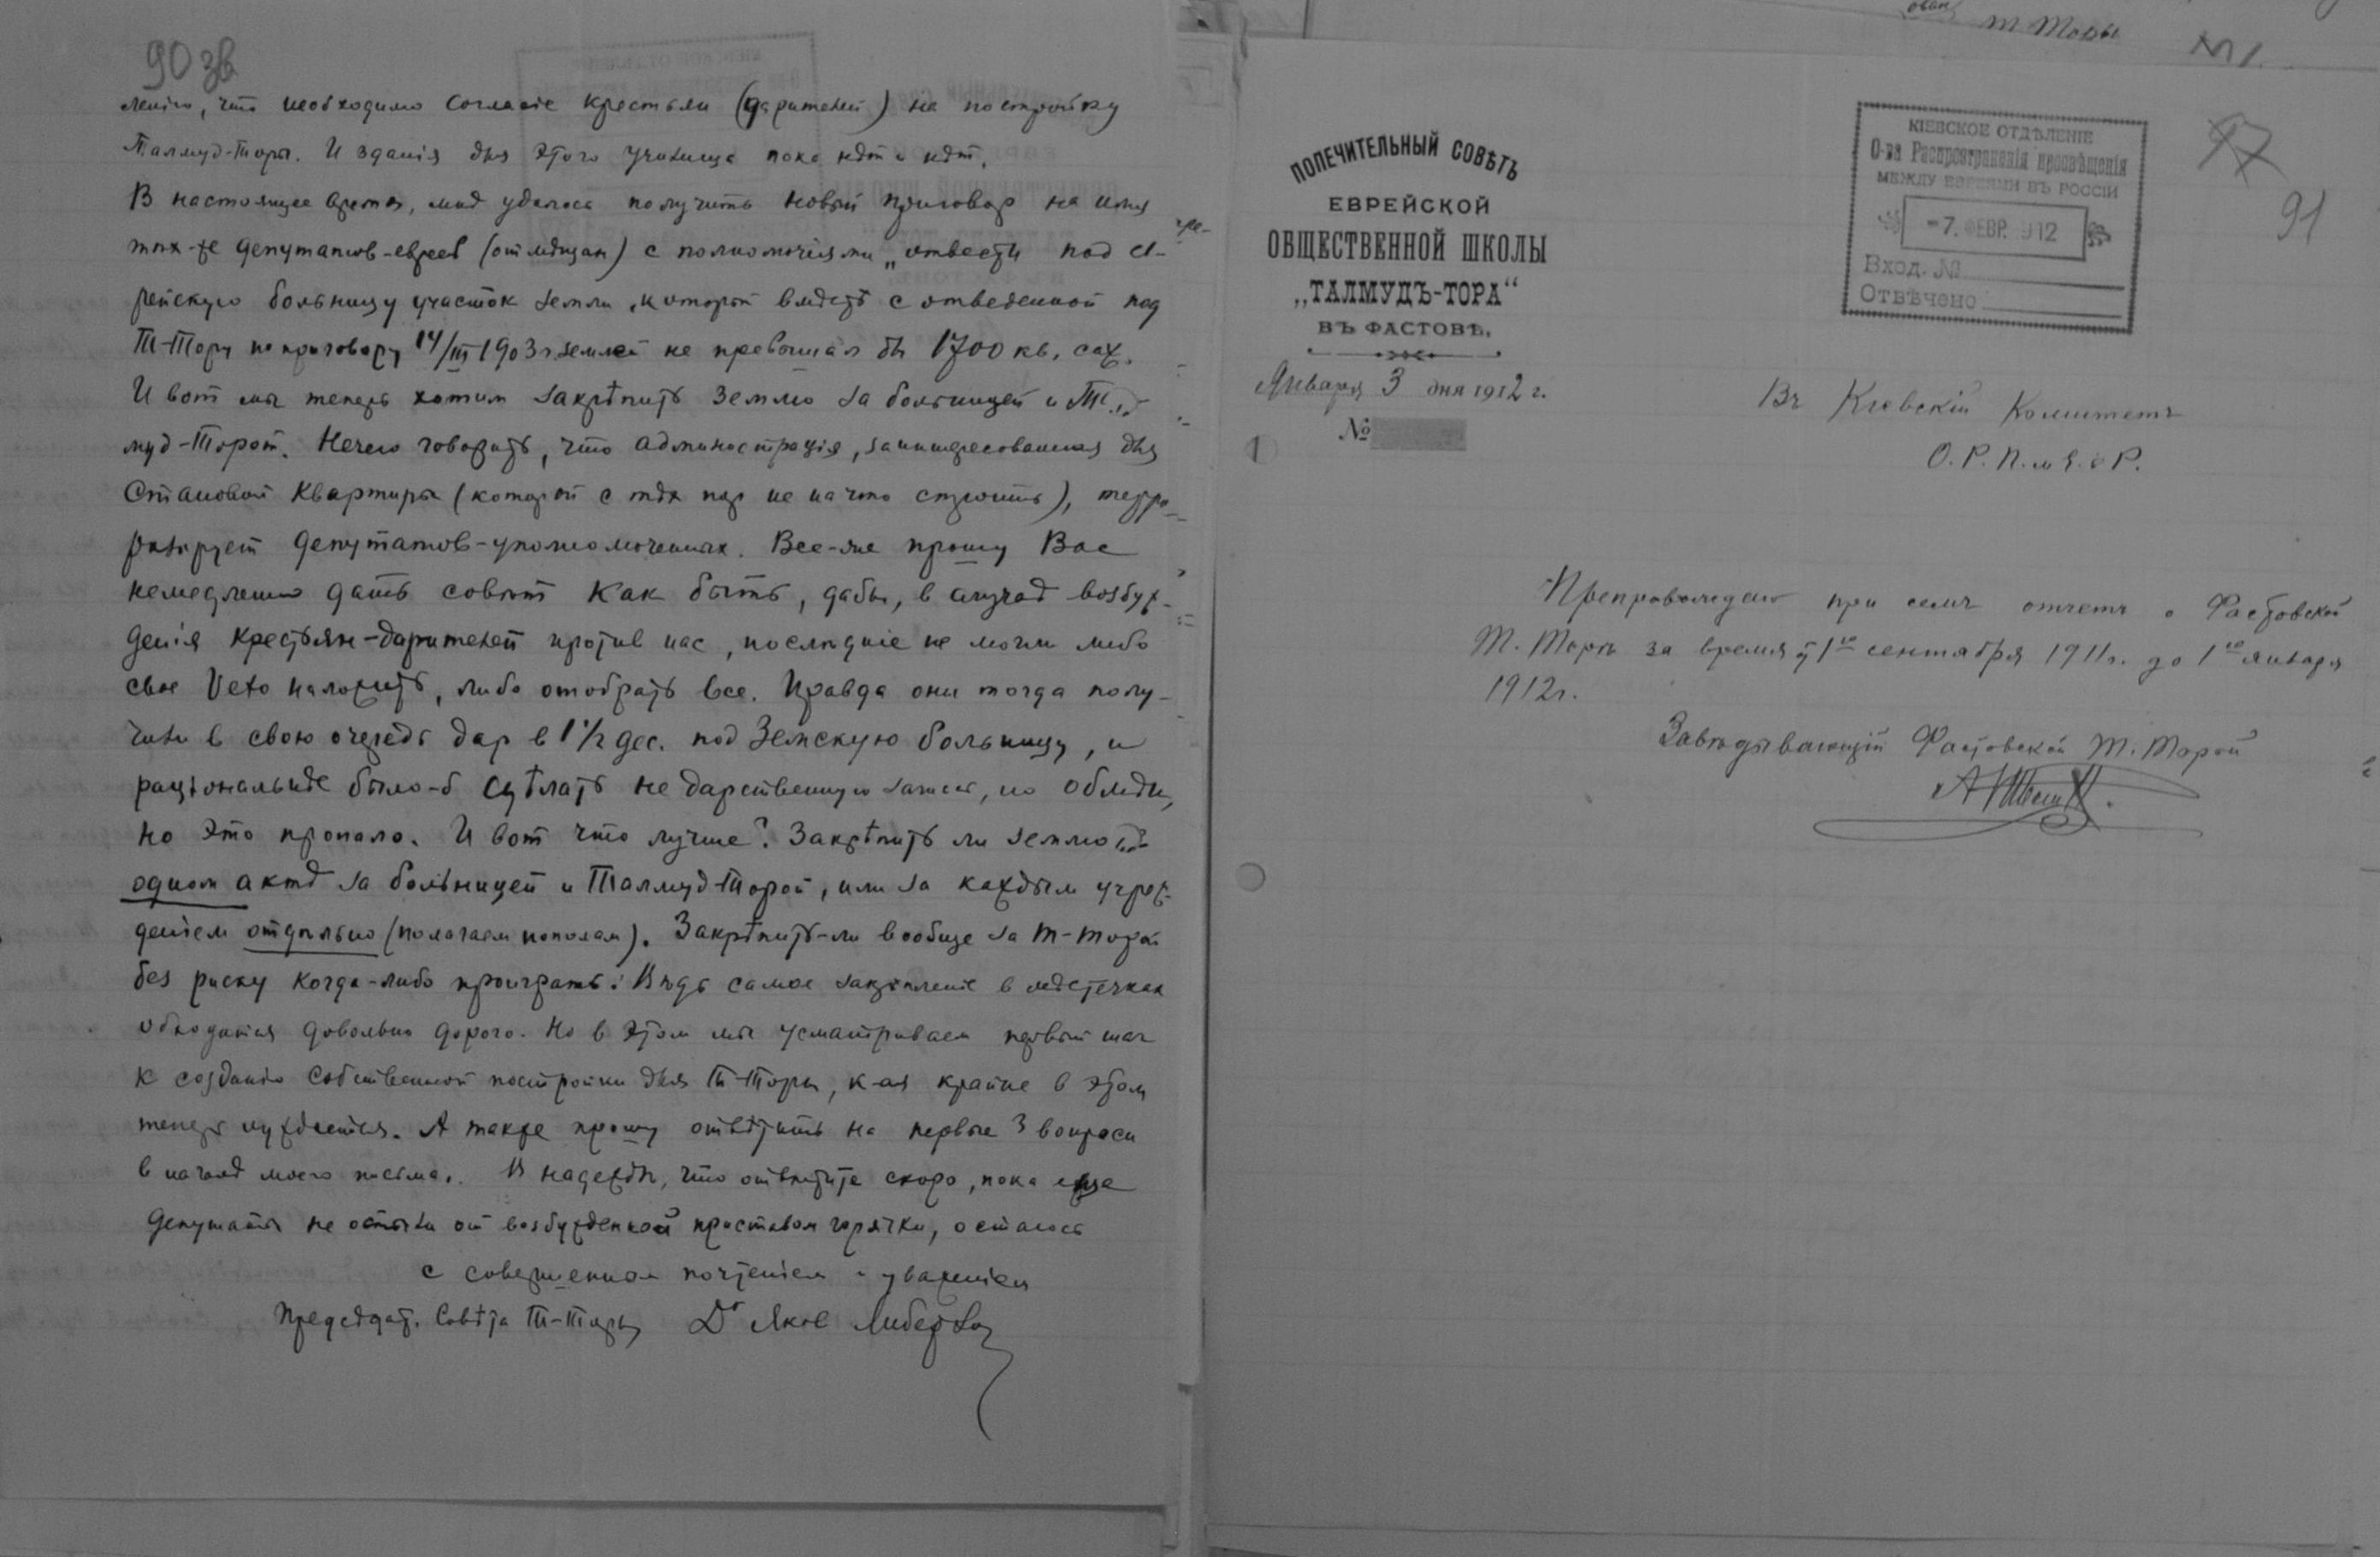 90 зв
ленію, что необходимо согласіе крестьян (дарителей) на постройку
Талмуд-Торы. И зданія для этого училища пока нѣт и нѣт.
В настоящее время, мнѣ удалось получить новый приговор на имя
тѣх-же депутатов-евреев (от мѣщан) с полномочіями „отвести под ев-
рейскую больницу участок земли, который вмѣстѣ с отведенной под
Т-Тору по приговору 14/III 1903 г землей не превышал бы 1700 кв. саж.
И вот мы теперь хотим закрѣпить землю за больницей и Тал-
муд-Торой. Нечего говорить, что администрація, заинтересованная для
становой квартиры (которой с тѣх пор не на что строить), терро-
ризирует депутатов-уполномоченных. Все-же прошу Вас
немедленно дать совѣт как быть, дабы, в случаѣ возбуж-
денія крестьян-дарителей против нас, послѣдніе не могли либо
свое Veto наложить, либо отобрать все. Правда они тогда полу-
чили в свою очередь дар в 1 1/2 дес. под Земскую больницу, и
раціональнѣе было-б сдѣлать не дарственную запись, но обмѣн,
но это пропало. И вот что лучше? Закрѣпить ли землю
одном актѣ за больницей и Талмуд-Торой, или за каждым учреж-
деніем отдѣльно (полагаем пополам). Закрѣпить-ли вообще за Т-Торой
без риску когда-либо проиграть: Вѣдь самое закрѣпленіе в мѣстечках
обходится довольно дорого. Но в этом мы усматриваем первый шаг
к созданію собственной постройки для Т-Торы, к-ая крайне в этом
теперь нуждается. А также прошу отвѣтить на первые 3 вопроса
в началѣ моего письма. В надеждѣ, что отвѣтите скоро, пока еще
депутаты не остыли от возбужденной приставом горячки, остаюсь
с совершенным почтеніем и уваженіем
Предсѣдат. Совѣта Т-Торы Dr Яков
т Торы
№1.
97
91
ПОПЕЧИТЕЛЬНЫЙ СОВѢТЪ
ЕВРЕЙСКОЙ
ОБЩЕСТВЕННОЙ ШКОЛЫ
„ТАЛМУДЪ-ТОРА“
ВЪ ФАСТОВѢ.
Января 3 дня 1912 г.
№
КІЕВСКОЕ ОТДѢЛЕНІЕ
О-ва Распространенія просвѣщенія
МЕЖДУ ЕВРЕЯМИ ВЪ РОССІИ
-7. ФЕВР. 912
Вход. №
Отвѣчено
Въ Кіевскій Комитетъ
О. Р. П. м Е. в Р.
Препровождаю при семъ отчетъ о Фастовской
Т. Торѣ за время съ 1го сентября 1911 г. до 1го января
1912 г.
Завѣдывающій Фастовской Т. Торой